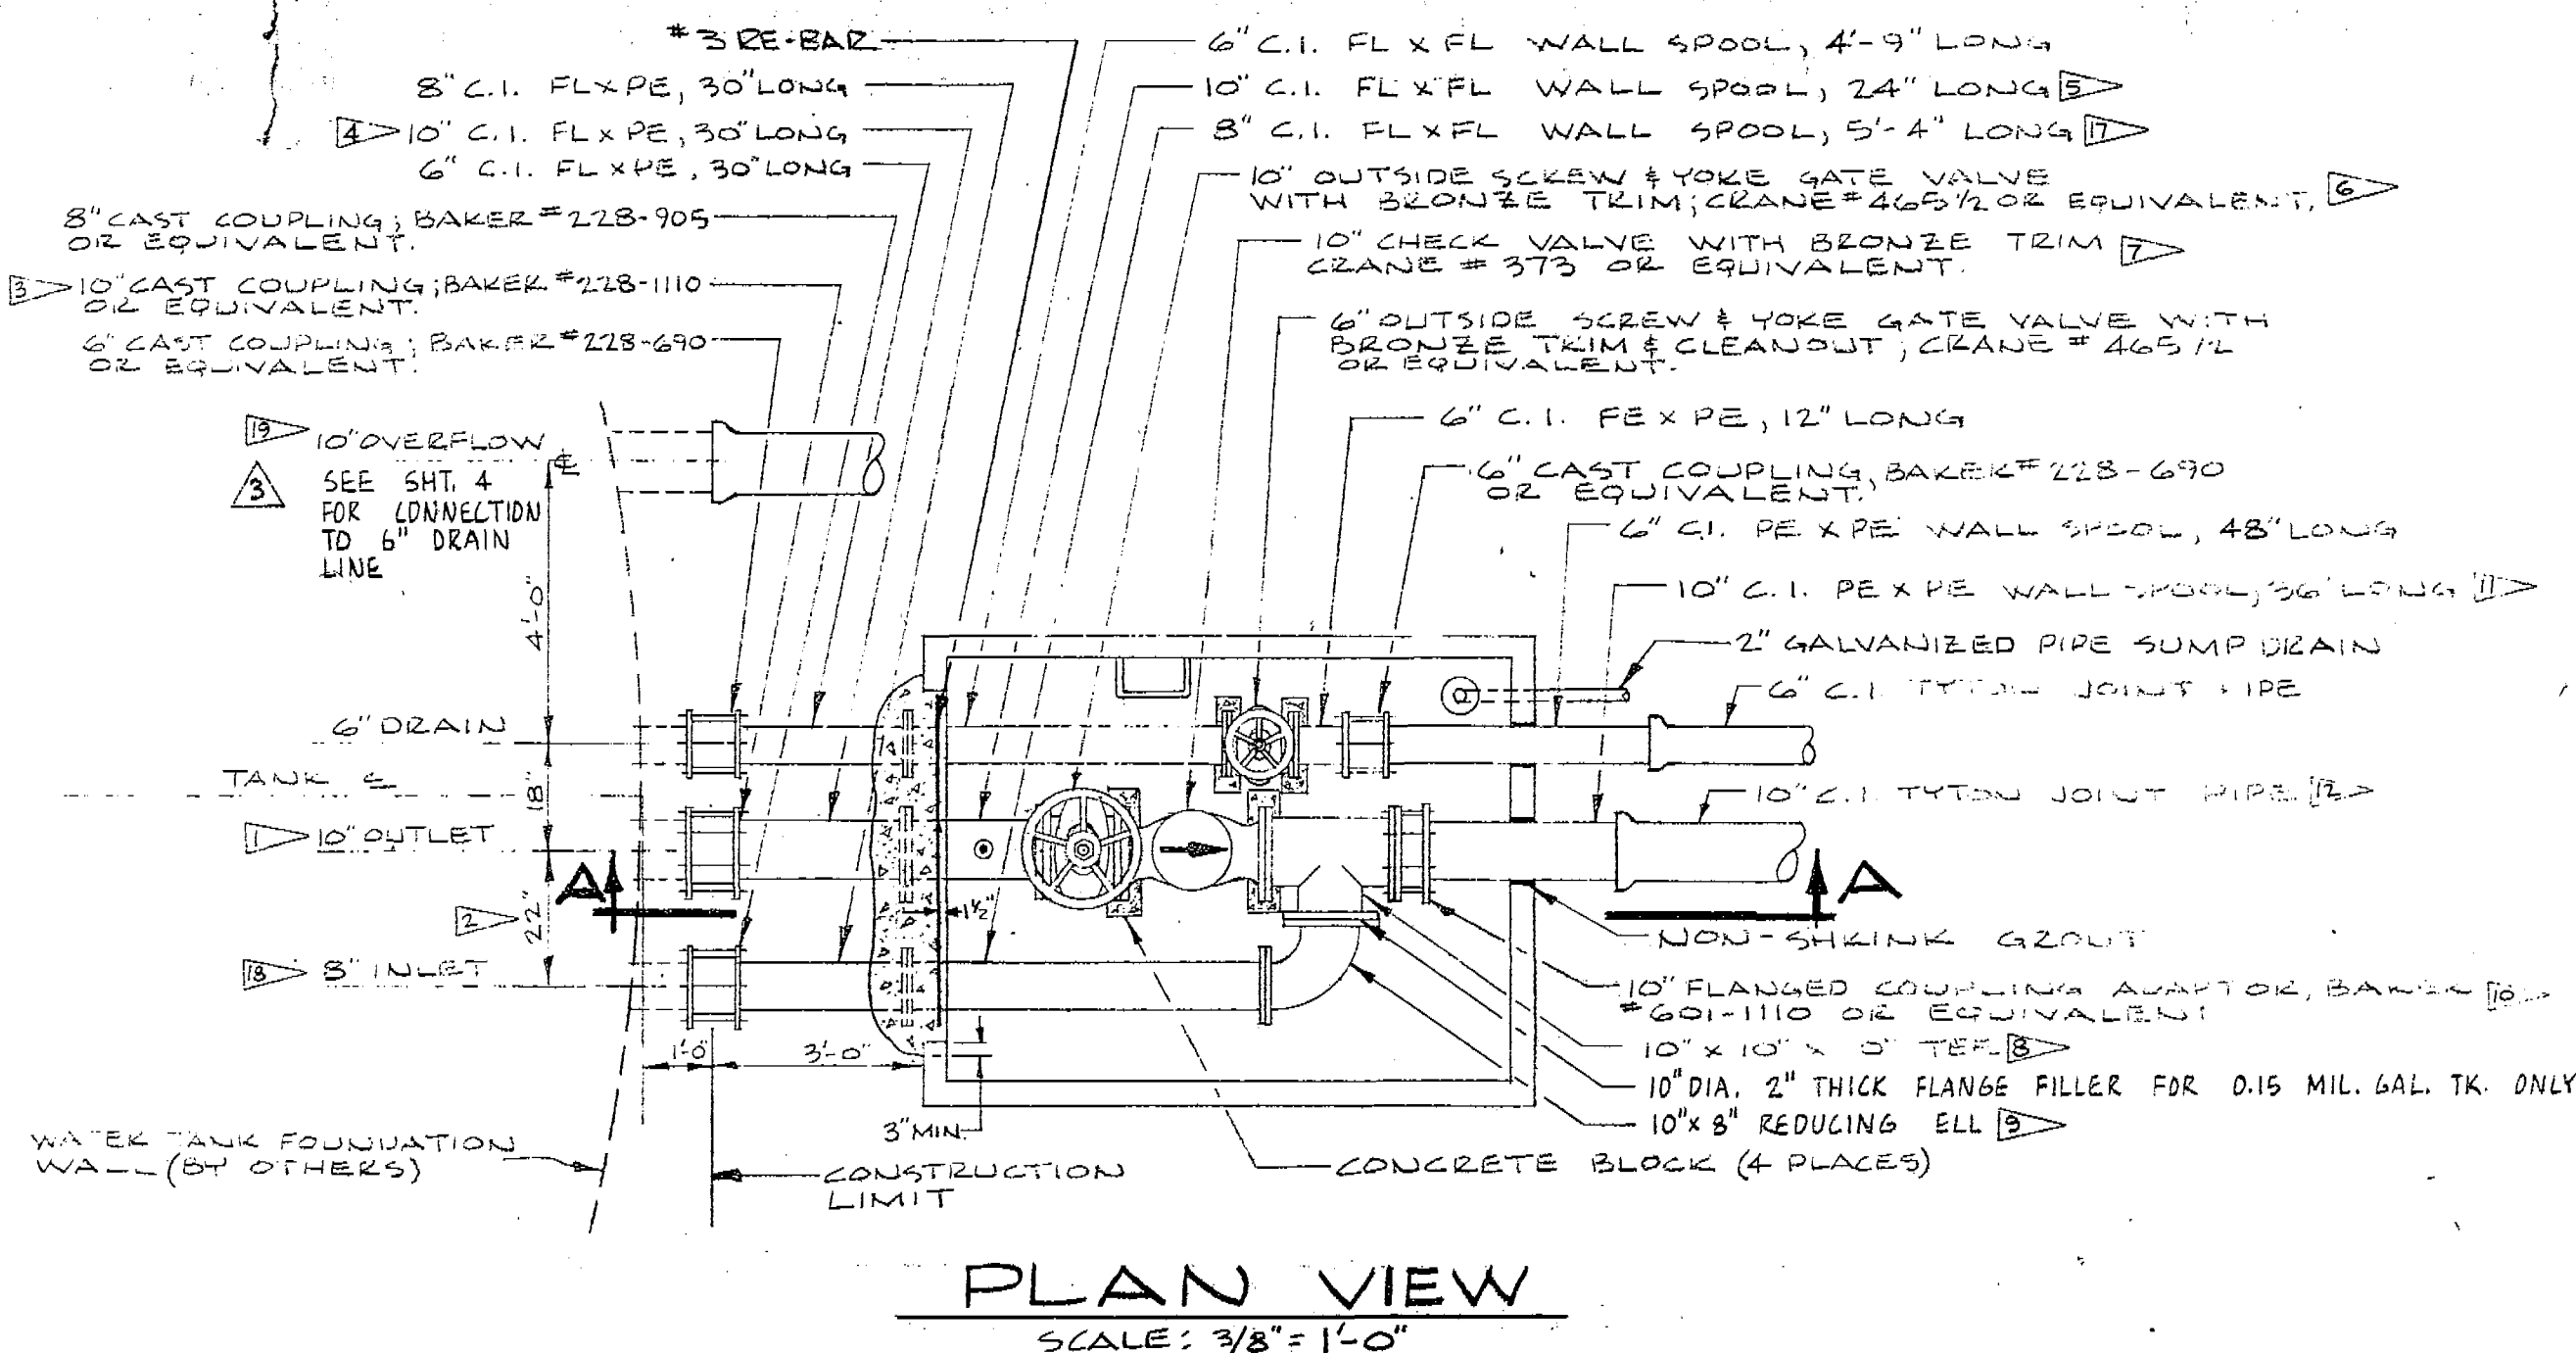 #3 RE-BAR
8" C.I. FL X PE, 30" LONG
4 10" C.I. FL X PE, 30" LONG
6" C.I. FL X PE, 30" LONG
8" CAST COUPLING; BAKER #228-905
OR EQUIVALENT.
3 10" CAST COUPLING; BAKER #228-1110
OR EQUIVALENT.
6" CAST COUPLING; BAKER #228-690
OR EQUIVALENT.
6" C.I. FL X FL WALL SPOOL, 4'-9" LONG
10" C.I. FL X FL WALL SPOOL, 24" LONG 5
8" C.I. FL X FL WALL SPOOL, 5'-4" LONG 17
10" OUTSIDE SCREW & YOKE GATE VALVE
WITH BRONZE TRIM; CRANE #465 1/2 OR EQUIVALENT. 6
10" CHECK VALVE WITH BRONZE TRIM 7
CRANE #373 OR EQUIVALENT.
6" OUTSIDE SCREW & YOKE GATE VALVE WITH
BRONZE TRIM & CLEANOUT; CRANE #465 1/2
OR EQUIVALENT.
6" C.I. FE X PE, 12" LONG
6" CAST COUPLING, BAKER #228-690
OR EQUIVALENT.
6" C.I. PE X PE WALL SPOOL, 48" LONG
10" C.I. PE X PE WALL SPOOL, 36" LONG 11
2" GALVANIZED PIPE SUMP DRAIN
6" C.I. TYTON JOINT PIPE
10" C.I. TYTON JOINT PIPE 12
19 10" OVERFLOW
℄
3 SEE SHT. 4
FOR CONNECTION
TO 6" DRAIN
LINE
4'-0"
6" DRAIN
TANK ℄
18"
1 10" OUTLET
A
2 22"
18 8" INLET
1 1/2"
A
NON-SHRINK GROUT
10" FLANGED COUPLING ADAPTOR, BAKER 10
#601-1110 OR EQUIVALENT
10" X 10" X TEE 8
10" DIA. 2" THICK FLANGE FILLER FOR 0.15 MIL. GAL. TK. ONLY
10" X 8" REDUCING ELL 9
CONCRETE BLOCK (4 PLACES)
1'-0"
3'-0"
3" MIN.
WATER TANK FOUNDATION
WALL (BY OTHERS)
CONSTRUCTION
LIMIT
PLAN VIEW
SCALE: 3/8" = 1'-0"